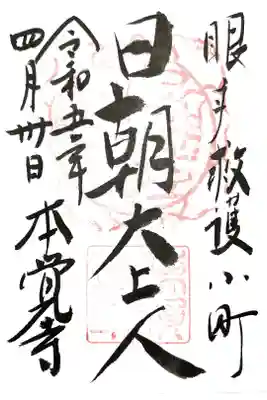 眼救護小町
日朝大上人
令和五年
四月卅日
本覚寺